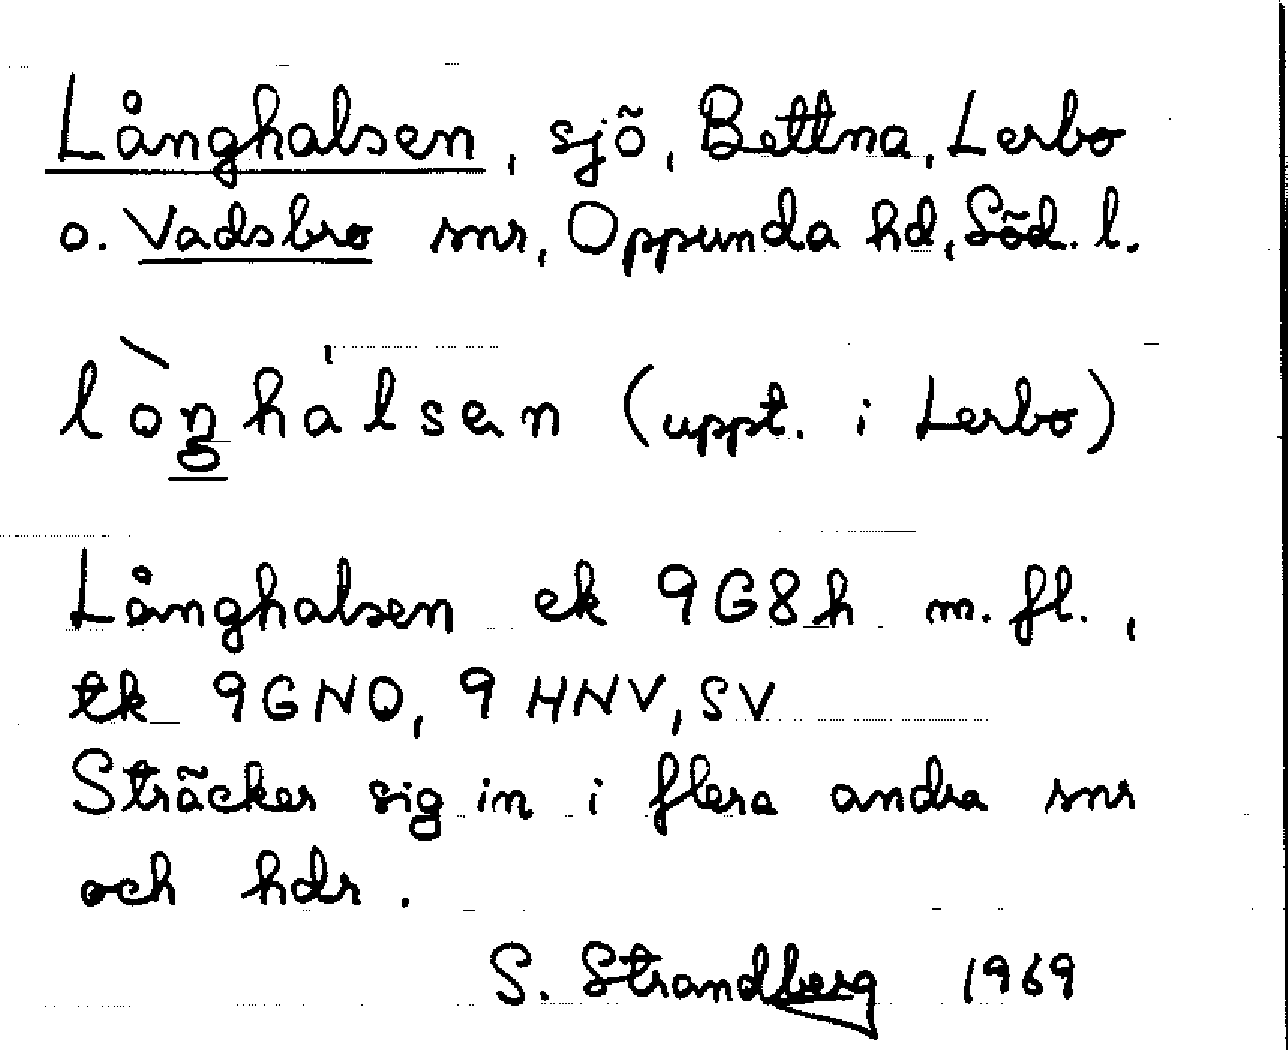 Långhalsen, sjö, Bettna, Lerbo
o. Vadsbro snr, Oppunda hd, Söd. l.
lòŋhàlsen (uppt. i Lerbo)
Långhalsen ek 9G8h m. fl.,
tk 9GNO, 9 HNV, SV
Sträcker sig in i flera andra snr
och hdr.
S. Strandberg 1969